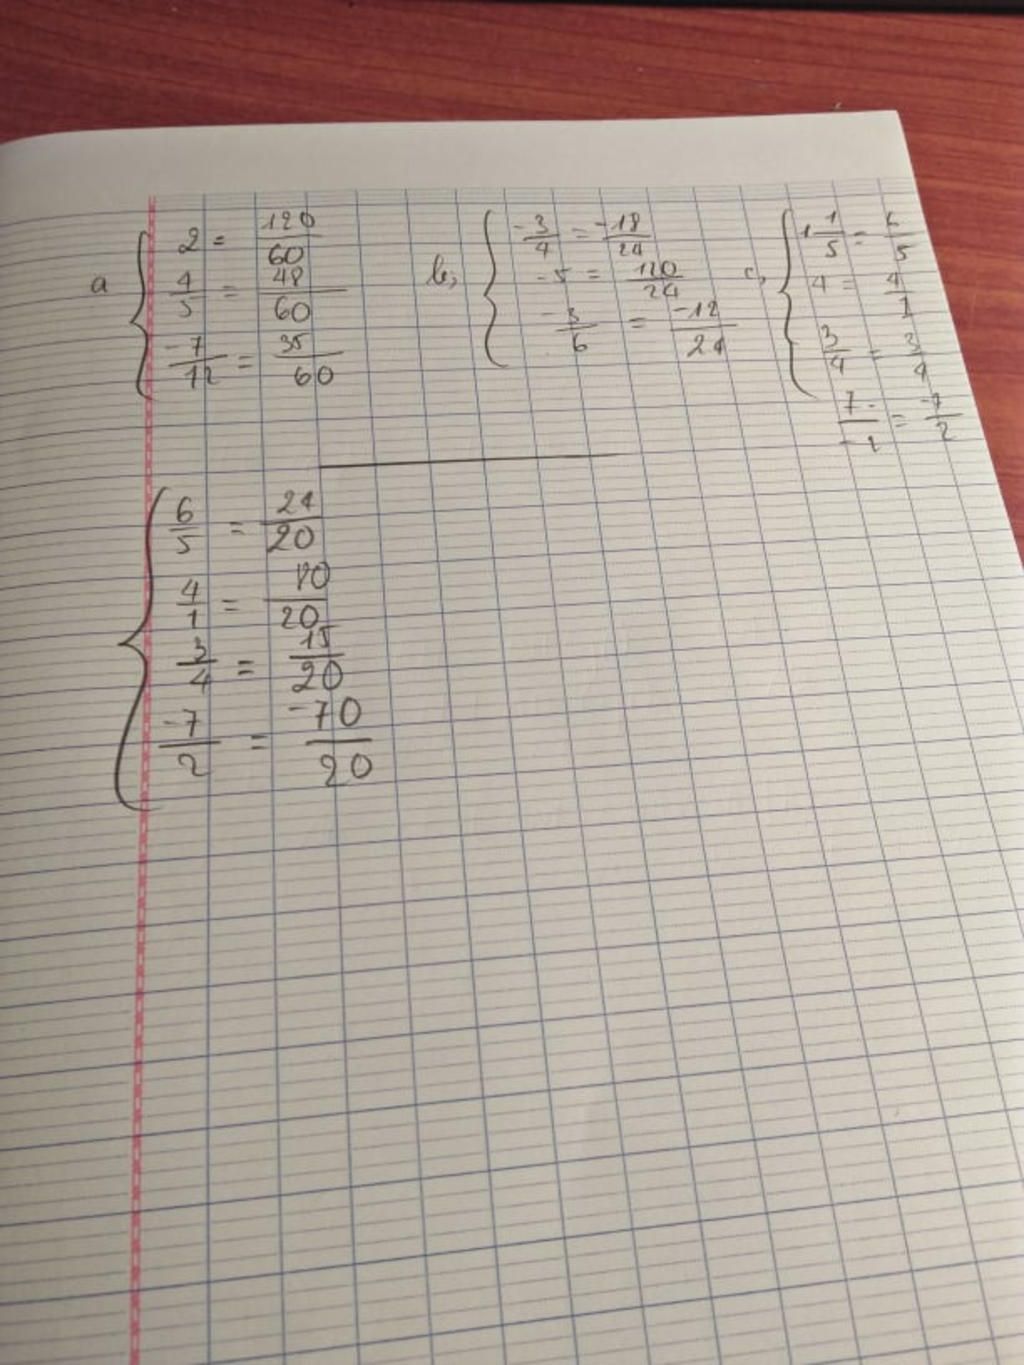 a { 2 = 120/60
4/5 = 48/60
-7/12 = 35/60
b, { -3/4 = -18/24
-5 = 120/24
-3/6 = -12/24
c, { 1 1/5 = 6/5
4 = 4/1
3/4 = 3/4
7/-2 = -7/2
{ 6/5 = 24/20
4/1 = 80/20
3/4 = 15/20
-7/2 = -70/20